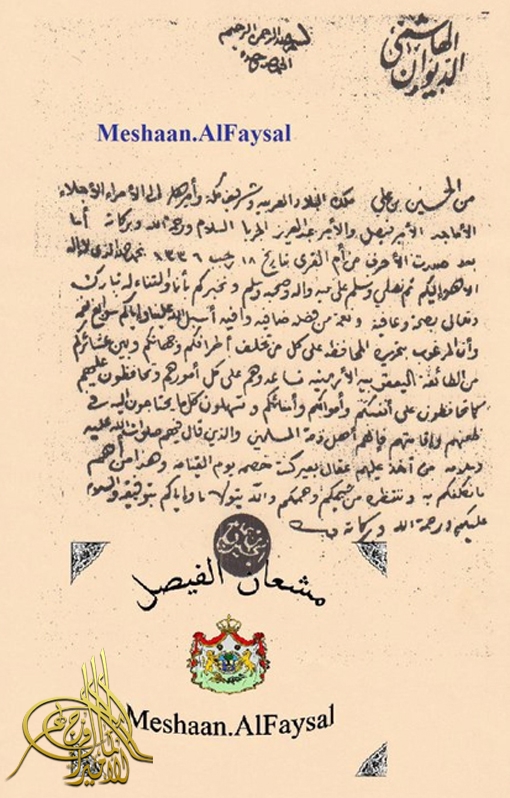 الديوان الهاشمي
بسم الله الرحمن الرحيم
الحمد لله وحده
Meshaan.AlFaysal
من الحسين بن علي ملك البلاد العربية وشريف مكة وأميرها إلى الأمراء الأجلاء
الأماجد الأمير فيصل والأمير عبدالعزيز الجربا السلام ورحمة الله وبركاته أما
بعد صدرت الأحرف من أم القرى بتاريخ ١٨ رجب ١٣٣٦ نحمد الله الذي لا إله
الا هو إليكم ثم نصلي ونسلم على نبيه وآله وصحبه وسلم ونخبركم بأنا والثناء له تبارك
وتعالى بصحة وعافية ونعمة من فضله ضافية وافية أسبل الله علينا وإياكم سوابغ نعمه
وأن المرغوب بتحريره المحافظة على كل من تخلف بأطرافكم وجهاتكم وبين عشائركم
من الطائفة اليعقوبية الأرمنية تساعدوهم على كل أمورهم وتحافظون عليهم
كما تحافظون على أنفسكم وأموالكم وأبنائكم وتسهلون كل ما يحتاجون اليه في
ظعنهم وإقامتهم فإنهم أهل ذمة المسلمين والذي قال فيهم صلوات الله عليه
وسلامه من أخذ عليهم عقال بعير كنت خصمه يوم القيامة وهذا من أهم
ما نكلفكم به وننتظره من شيمكم وهممكم والله يتولانا وإياكم بتوفيقه والسلام
عليكم ورحمة الله وبركاته
مشعان الفيصل
Meshaan.AlFaysal